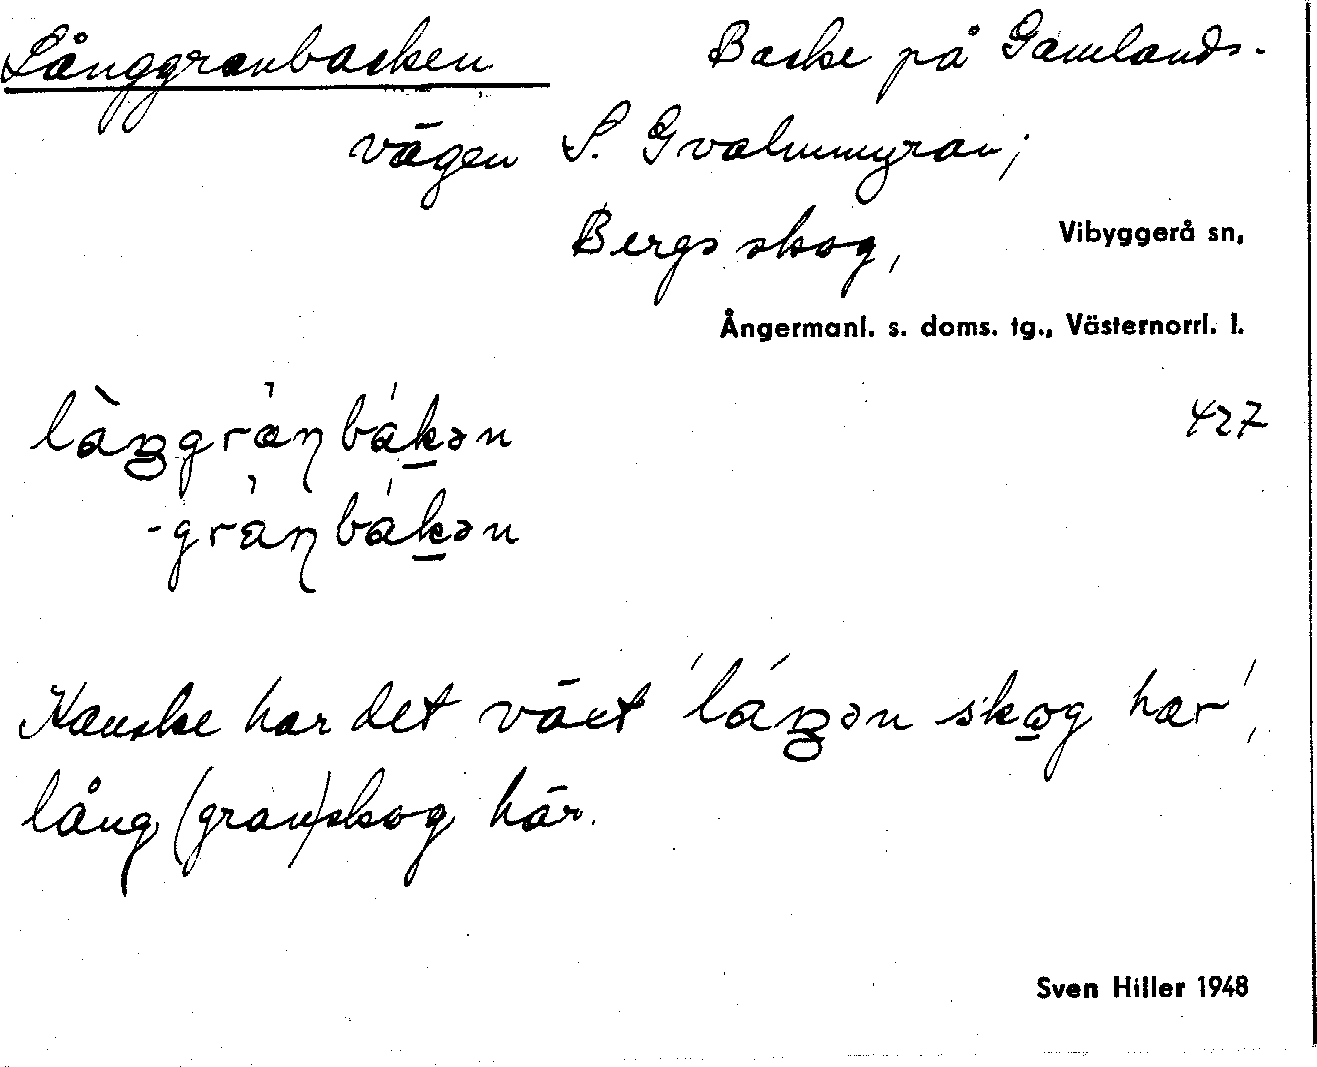 Långgranbacken Backe på Gamlands-
vägen S. Gvalmmyran;
Bergs skog, Vibyggerå sn,
Ångermanl. s. doms. tg., Västernorrl. l.
427
Kanske har det växt
lång (gran)skog här.
Sven Hiller 1948